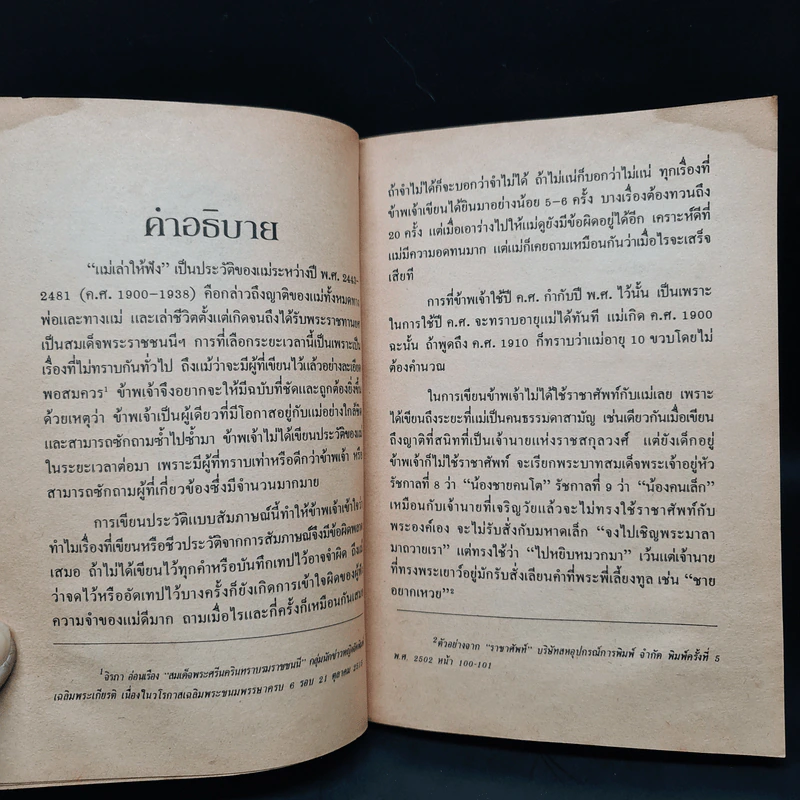 คำอธิบาย
"แม่เล่าให้ฟัง" เป็นประวัติของแม่ระหว่างปี พ.ศ.
2481 (ค.ศ. 1900–1938) คือกล่าวถึงญาติของแม่ทั้งหมดทาง
พ่อและทางแม่ และเล่าชีวิตตั้งแต่เกิดจนถึงได้รับพระราชทาน
เป็นสมเด็จพระราชชนนีฯ การที่เลือกระยะเวลานี้เป็นเพราะเป็น
เรื่องที่ไม่ทราบกันทั่วไป ถึงแม้ว่าจะมีผู้ที่เขียนไว้แล้วอย่างละเอียด
พอสมควร¹ ข้าพเจ้าจึงอยากจะให้มีฉบับที่ชัดและถูกต้องยิ่งขึ้น
ด้วยเหตุว่า ข้าพเจ้าเป็นผู้เดียวที่มีโอกาสอยู่กับแม่อย่างใกล้ชิด
และสามารถซักถามซ้ำไปซ้ำมา ข้าพเจ้าไม่ได้เขียนประวัติของแม่
ในระยะเวลาต่อมา เพราะมีผู้ที่ทราบเท่าหรือดีกว่าข้าพเจ้า หรือ
สามารถซักถามผู้ที่เกี่ยวข้องซึ่งมีจำนวนมากมาย
การเขียนประวัติแบบสัมภาษณ์นี้ทำให้ข้าพเจ้าเข้าใจว่า
ทำไมเรื่องที่เขียนหรือชีวประวัติจากการสัมภาษณ์จึงมีข้อผิดพลาด
เสมอ ถ้าไม่ได้เขียนไว้ทุกคำหรือบันทึกเทปไว้อาจจำผิด ถึงแม้
ว่าจดไว้หรืออัดเทปไว้บางครั้งก็ยังเกิดการเข้าใจผิดของผู้
ความจำของแม่ดีมาก ถามเมื่อไรและกี่ครั้งก็เหมือนกันเสมอ
¹จิรภา อ่อนเรือง "สมเด็จพระศรีนครินทราบรมราชชนนี" กลุ่มนักข่าวหญิง
เฉลิมพระเกียรติ เนื่องในวโรกาสเฉลิมพระชนมพรรษาครบ 6 รอบ 21 ตุลาคม
ถ้าจำไม่ได้ก็จะบอกว่าจำไม่ได้ ถ้าไม่แน่ก็บอกว่าไม่แน่ ทุกเรื่องที่
ข้าพเจ้าเขียนได้ยินมาอย่างน้อย 5–6 ครั้ง บางเรื่องต้องทวนถึง
20 ครั้ง แต่เมื่อเอาร่างไปให้แม่ดูยังมีข้อผิดอยู่ได้อีก เคราะห์ดีที่
แม่มีความอดทนมาก แต่แม่ก็เคยถามเหมือนกันว่าเมื่อไรจะเสร็จ
เสียที
การที่ข้าพเจ้าใช้ปี ค.ศ. กำกับปี พ.ศ. ไว้นั้น เป็นเพราะ
ในการใช้ปี ค.ศ. จะทราบอายุแม่ได้ทันที แม่เกิด ค.ศ. 1900
ฉะนั้น ถ้าพูดถึง ค.ศ. 1910 ก็ทราบว่าแม่อายุ 10 ขวบโดยไม่
ต้องคำนวณ
ในการเขียนข้าพเจ้าไม่ได้ใช้ราชาศัพท์กับแม่เลย เพราะ
ได้เขียนถึงระยะที่แม่เป็นคนธรรมดาสามัญ เช่นเดียวกันเมื่อเขียน
ถึงญาติที่สนิทที่เป็นเจ้านายแห่งราชสกุลวงศ์ แต่ยังเด็กอยู่
ข้าพเจ้าก็ไม่ใช้ราชาศัพท์ จะเรียกพระบาทสมเด็จพระเจ้าอยู่หัว
รัชกาลที่ 8 ว่า "น้องชายคนโต" รัชกาลที่ 9 ว่า "น้องคนเล็ก"
เหมือนกับเจ้านายที่เจริญวัยแล้วจะไม่ทรงใช้ราชาศัพท์กับ
พระองค์เอง จะไม่รับสั่งกับมหาดเล็ก "จงไปเชิญพระมาลา
มาถวายเรา" แต่ทรงใช้ว่า "ไปหยิบหมวกมา" เว้นแต่เจ้านาย
ที่ทรงพระเยาว์อยู่มักรับสั่งเลียนคำที่พระพี่เลี้ยงทูล เช่น "ชาย
อยากเหวย"²
²ตัวอย่างจาก "ราชาศัพท์" บริษัทสหอุปกรณ์การพิมพ์ จำกัด พิมพ์ครั้งที่ 5
พ.ศ. 2502 หน้า 100-101